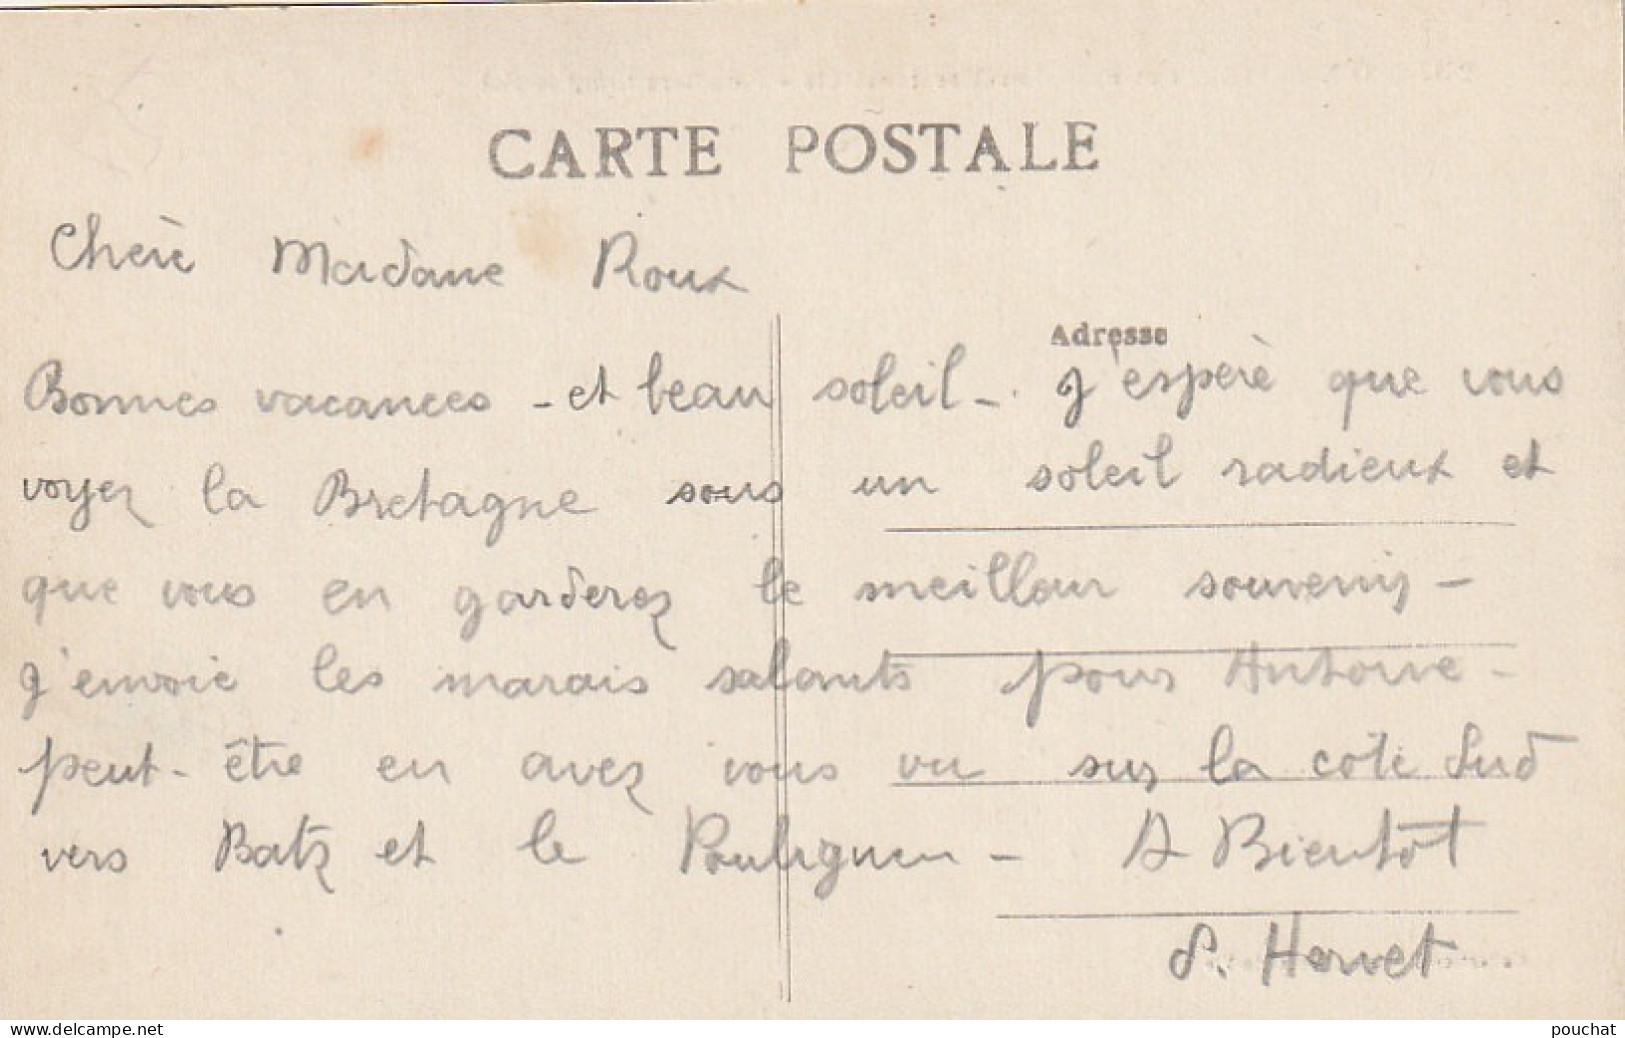 CARTE POSTALE
Chère Madame Roux
Adresse
Bonnes vacances - et beau soleil - J'espère que vous
voyez la Bretagne sous un soleil radieux et
que vous en garderez le meilleur souvenir -
J'envoie les marais salants pour Antoine -
peut-être en avez vous vu sur la côte Sud
vers Batz et le Pouliguen - A Bientôt
S. Hervet
www.delcampe.net
pouchat